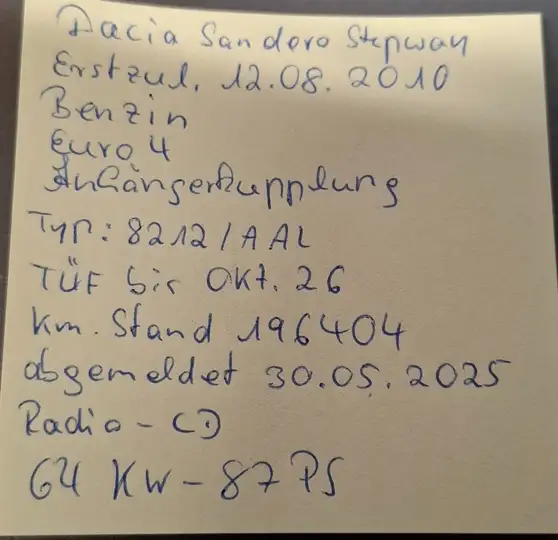 Dacia Sandero Stepway
Erstzul. 12.08.2010
Benzin
Euro 4
Anhängerkupplung
Typ: 8212/AAL
TÜF bis Okt. 26
Km. Stand 196404
abgemeldet 30.05.2025
Radio - CD
64 KW - 87 PS